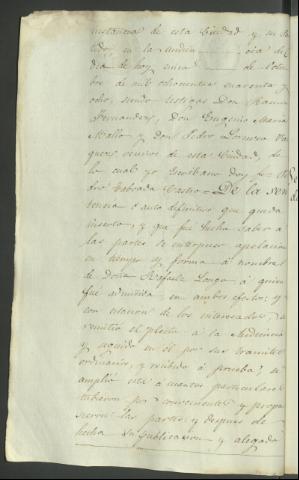 instancia de esta Ciudad y su Par
tido, en la Audiencia del
dia de hoy nueve de Octu
bre de mil ochocientos cuarenta y
ocho, siendo testigos Don Ramon
Fernandez, Don Eugenio Maria
Mallo y Don Pedro Lorenzo Va
queros vecinos de esta Ciudad, de
lo cual yo Escribano doy fee
dro Taborda Castro = De la sen
tencia ó auto definitivo que queda
inserto, y que fué hecho saber á
las partes se interpuso apelacion
en tiempo y forma á nombre
de Doña Rafaela Longo á quien
fué admitida en ambos efectos; y
con citacion de los interesados, se
remitió el pleito á la Audiencia
y seguido en él por sus tramites
ordinarios, y recibido á prueba, se
amplió esta á cuantos particulares
tubieron por convenientes y propu
sieron las partes; y despues de
hecha su publicacion y alegado